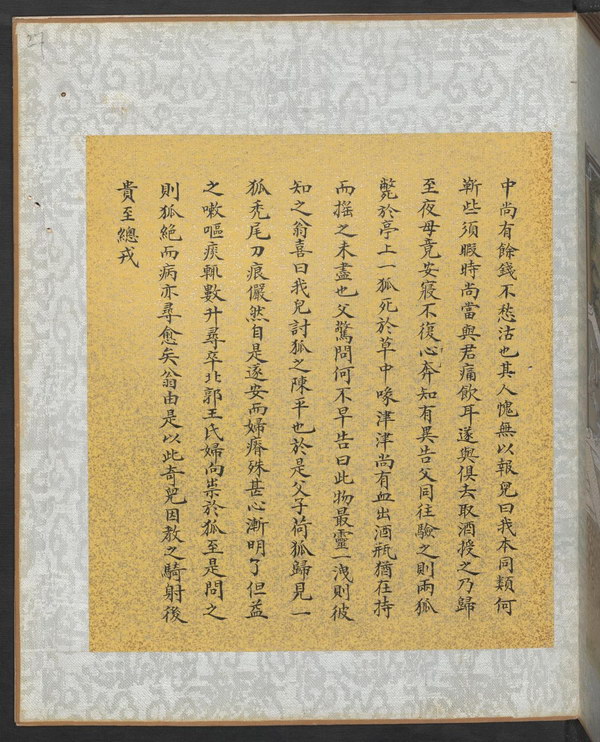 27
中尚有餘錢不愁沽也其人愧無以報兒曰我本同類何
靳些須暇時尚當與君痛飲耳遂與俱去取酒授之乃歸
至夜母竟安寢不復心奔知有異告父同往驗之則兩狐
斃於亭上一狐死於草中喙津津尚有血出酒瓶猶在持
而搖之未盡也父驚問何不早告曰此物最靈一洩則彼
知之翁喜曰我兒討狐之陳平也於是父子荷狐歸見一
狐禿尾刀痕儼然自是遂安而婦瘠殊甚心漸明了但益
之嗽嘔痰輒數升尋卒北郭王氏婦向祟於狐至是問之
則狐絕而病亦尋愈矣翁由是以此奇兒因教之騎射後
貴至總戎